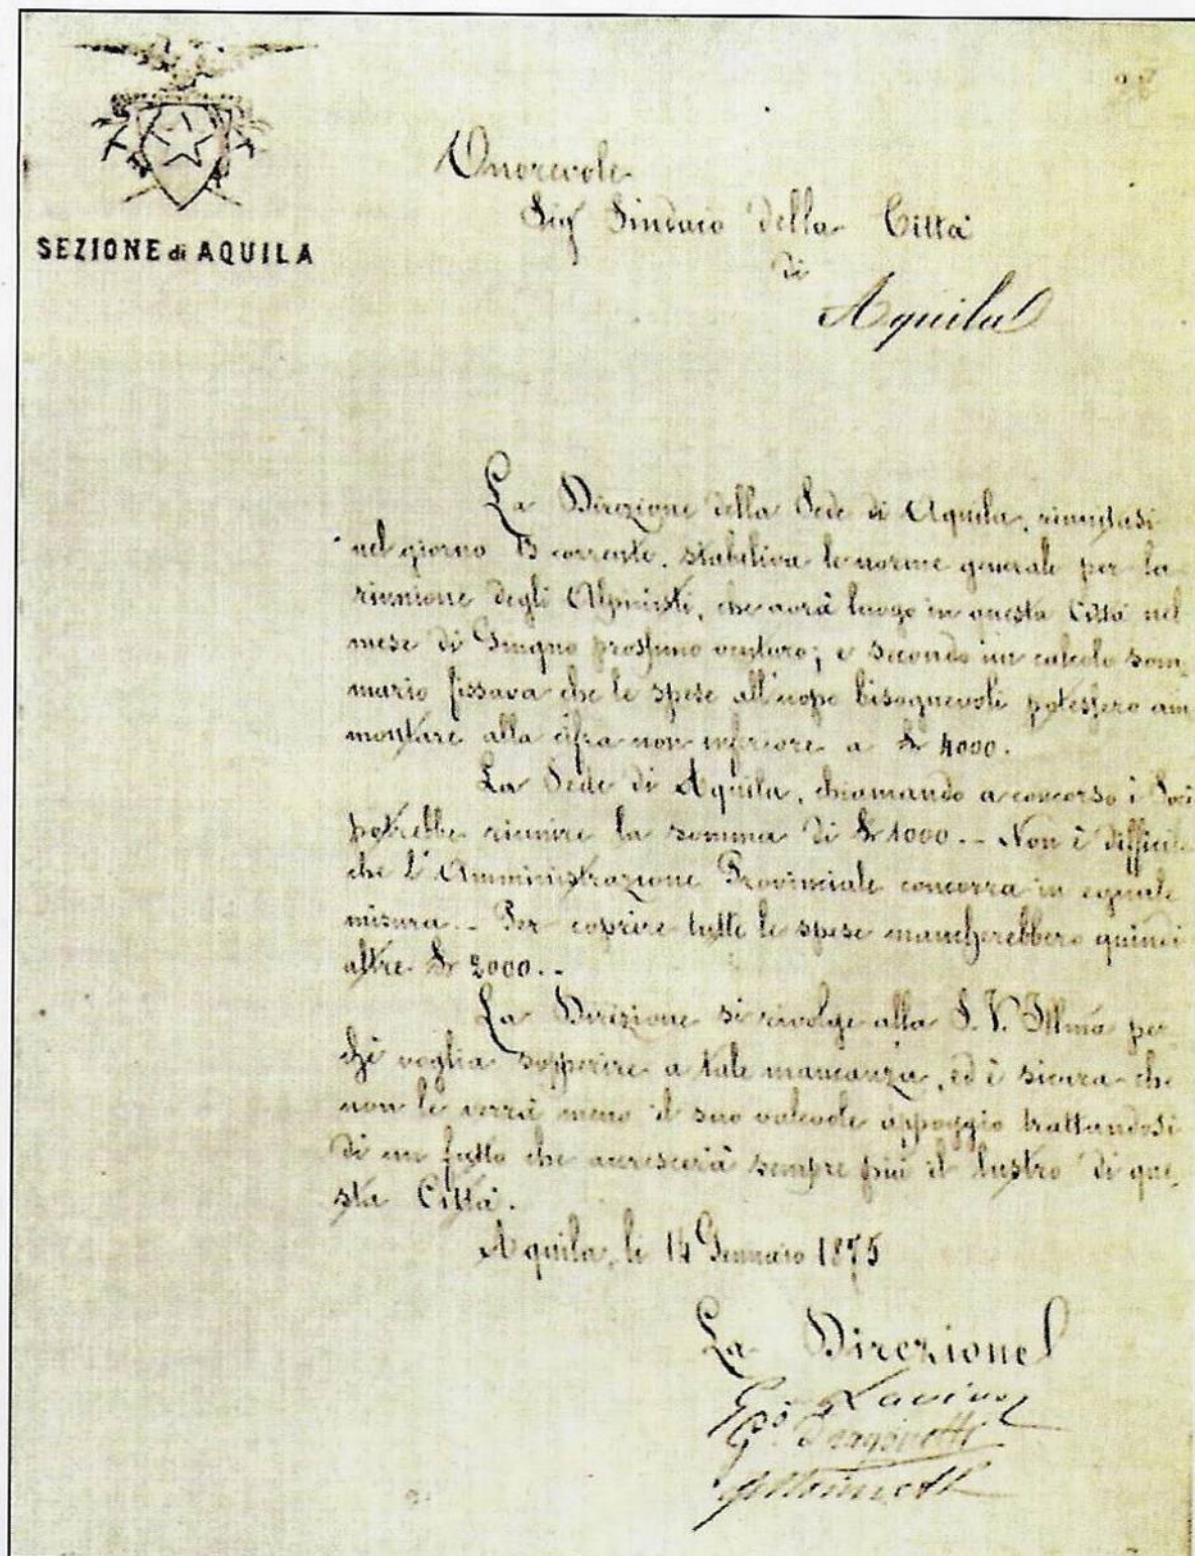 SEZIONE di AQUILA
Onorevole
Sig Sindaco della Città
di
Aquila
La Direzione della Sede di Aquila, riunitasi
nel giorno 13 corrente, stabiliva le norme generali per la
riunione degli Alpinisti, che avrà luogo in questa Città nel
mese di Giugno prossimo venturo; e secondo un calcolo som
mario fissava che le spese all'uopo bisognevoli potessero am
montare alla cifra non inferiore a £ 4000.
La Sede di Aquila, chiamando a concorso i Soci
potrebbe riunire la somma di £ 1000.- Non è difficile
che l'Amministrazione Provinciale concorra in eguale
misura.- Per coprire tutte le spese mancherebbero quindi
altre £ 2000.-
La Direzione si rivolge alla S. V. Illma per
chè voglia sopperire a tale mancanza, ed è sicura che
non le verrà meno il suo valevole appoggio trattandosi
di un fatto che accrescerà sempre più il lustro di que
sta Città.
Aquila, li 14 Gennaio 1875
La Direzione
Dragonetti